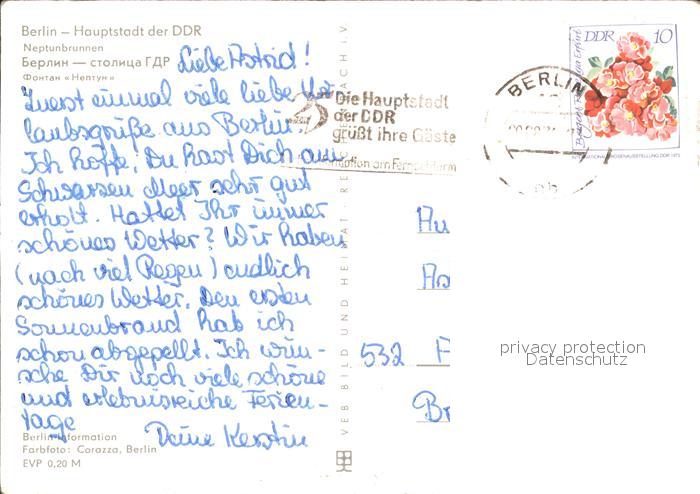 Berlin – Hauptstadt der DDR
Neptunbrunnen
Берлин — столица ГДР
Фонтан «Нептун»
Liebe Astrid!
Zuerst einmal viele liebe Ur-
laubsgrüße aus Berlin.
Ich hoffe, Du hast Dich am
Schwarzen Meer sehr gut
erholt. Hattet Ihr immer
schönes Wetter? Wir haben
(nach viel Regen) endlich
schönes Wetter. Den ersten
Sonnenbrand hab ich
schon abgepellt. Ich wün-
sche Dir noch viele schöne
und erlebnisreiche Ferien-
tage
Deine Kerstin
Berlin-Information
Farbfoto: Corazza, Berlin
EVP 0,20 M
VEB BILD UND HEIMAT · REICHENBACH i. V.
Die Hauptstadt
der DDR
grüßt ihre Gäste
am Fernsehturm
BERLIN
DDR 10
INTERNATIONALE ROSENAUSSTELLUNG DDR 1972
532
privacy protection
Datenschutz